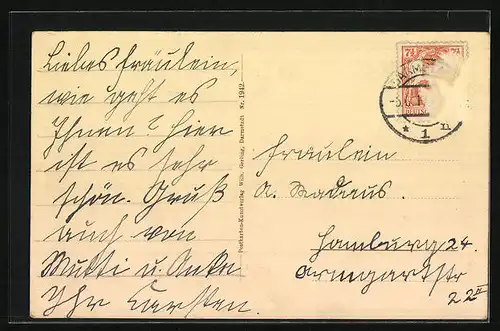 Liebes Fräulein,
wie geht es
Ihnen? Hier
ist es sehr
schön. Gruß
auch von
Mutti u. Anke
Ihr Karsten.
Postkarten-Kunstverlag Wilh. Gerling, Darmstadt Nr. 1942.
7½ 7½
* 1
Fräulein
A. Madaus.
Hamburg 24.
Armgartstr
2 2 II